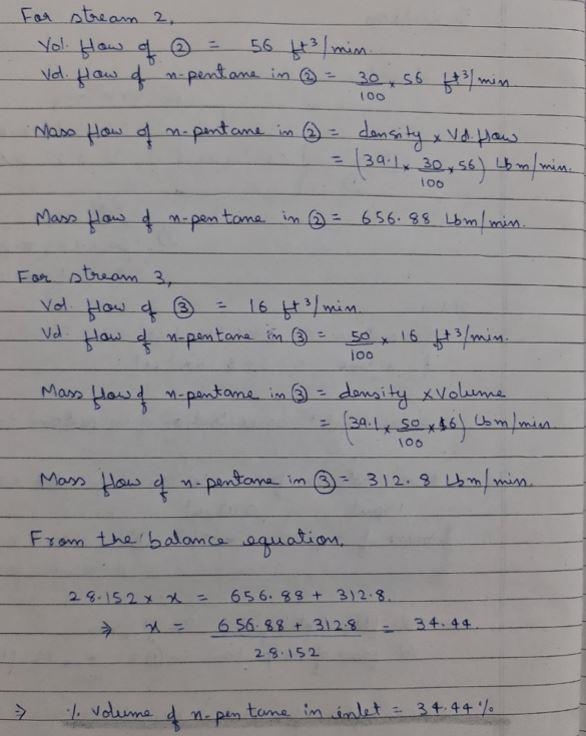 For stream 2,
Vol. flow of ② = 56 ft³/min.
Vol. flow of n-pentane in ② = 30/100 × 56 ft³/min
Mass flow of n-pentane in ② = density × Vol. flow
= (39.1 × 30/100 × 56) Lbm/min.
Mass flow of n-pentane in ② = 656.88 Lbm/min.
For stream 3,
Vol. flow of ③ = 16 ft³/min.
Vol. flow of n-pentane in ③ = 50/100 × 16 ft³/min.
Mass flow of n-pentane in ③ = density × Volume
= (39.1 × 50/100 × 16) Lbm/min
Mass flow of n-pentane in ③ = 312.8 Lbm/min.
From the balance equation,
28.152 × x = 656.88 + 312.8.
⇒ x = 656.88 + 312.8 / 28.152 = 34.44.
⇒ % Volume of n-pentane in inlet = 34.44%